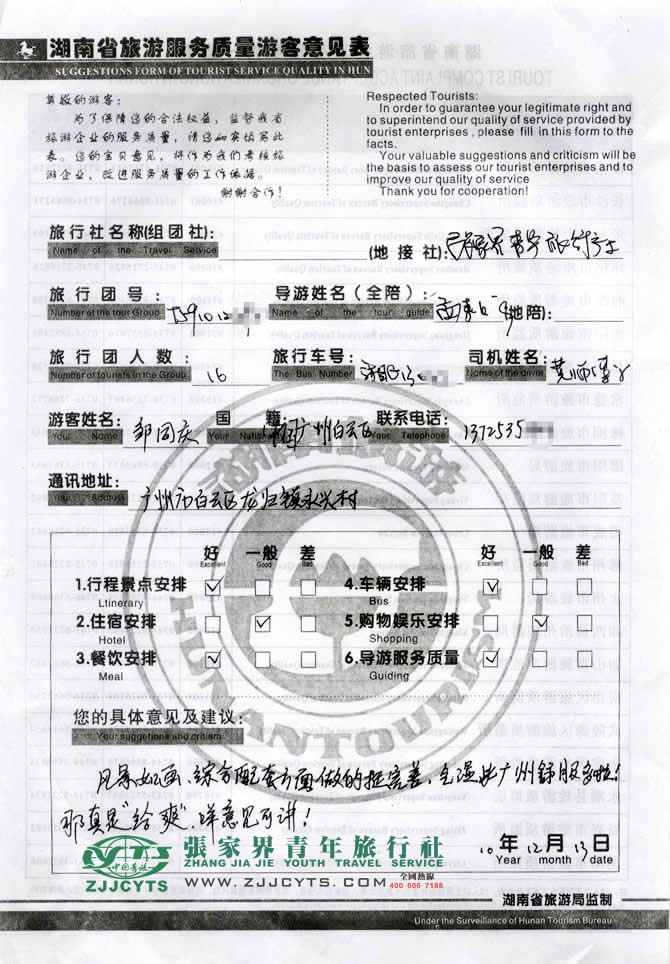 湖南省旅游服务质量游客意见表
SUGGESTIONS FORM OF TOURIST SERVICE QUALITY IN HUN
尊敬的游客:
为了保障您的合法权益,监督我省
旅游企业的服务质量,请您如实填写此
表。您的宝贝意见,将作为我们考核旅
游企业,改进服务质量的工作依据。
谢谢合作!
Respected Tourists:
In order to guarantee your legitimate right and
to superintend our quality of service provided by
tourist enterprises , please fill in this form to the
facts.
Your valuable suggestions and criticism will be
the basis to assess our tourist enterprises and to
improve our quality of service
Thank you for cooperation!
旅行社名称(组团社):
Name of the Travel Service
(地接社):
旅行团号:
Number of the tour Group
导游姓名(全陪):
Name of the tour guide
(地陪):
旅行团人数:
Number of tourists in the Group
16
旅行车号:
The Bus Number
司机姓名:
Name of the driver
游客姓名:
Your Name
邹国庆
国籍:
Your Nation
中国广州白云区
联系电话:
Your Telephone
1372535
通讯地址:
Your Address
广州市白云区龙归镇永兴村
好 一般 差 好 一般 差
Excellent Good Bad Excellent Good Bad
1.行程景点安排 4.车辆安排
Ltinerary Bus
2.住宿安排 5.购物娱乐安排
Hotel Shopping
3.餐饮安排 6.导游服务质量
Meal Guiding
湖南旅游
HUNAN TOURISM
您的具体意见及建议:
Your suggetions and critism
风景如画、综合配套方面做的挺完善,
那真是"给爽",咩意见可讲!
10年12月13日
Year month date
中国青旅
CYTS
ZJJCYTS
張家界青年旅行社
ZHANG JIA JIE YOUTH TRAVEL SERVICE
WWW.ZJJCYTS.COM
全國熱線
400 606 7188
湖南省旅游局监制
Under the Surveillance of Hunan Tourism Bureau